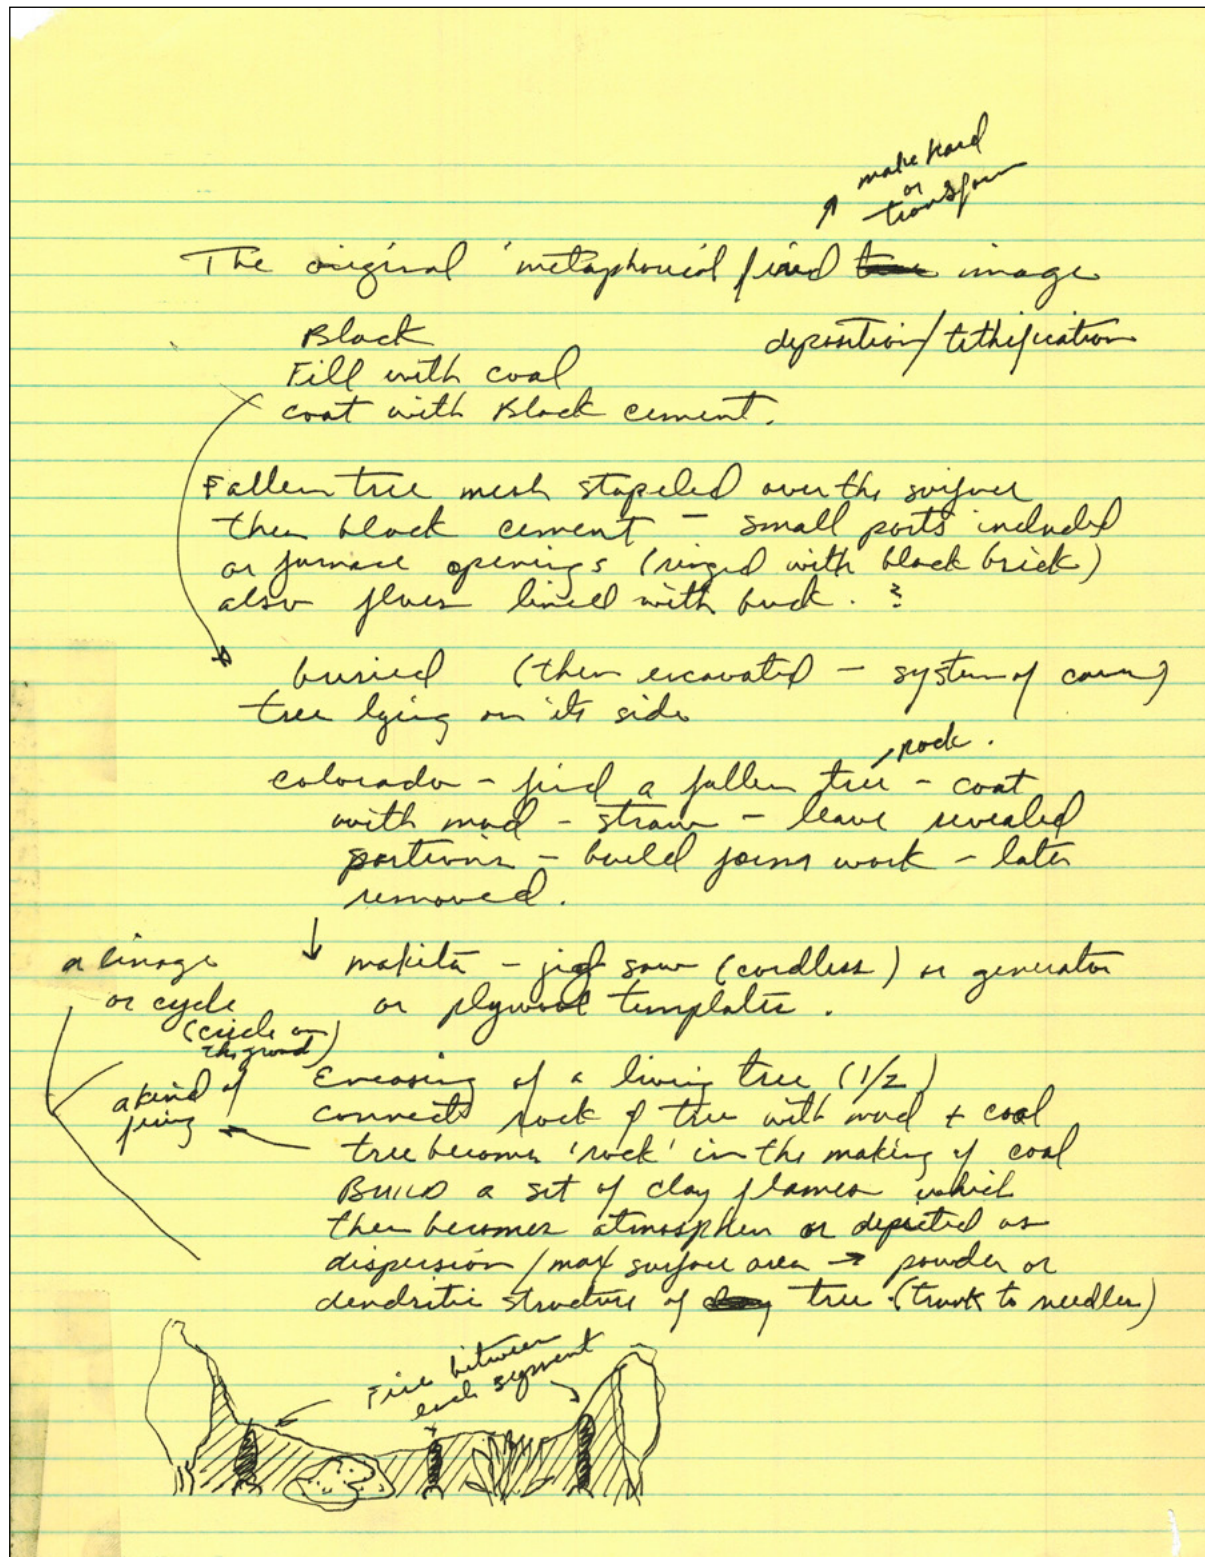 make hard
or
transform
The original 'metaphorical fired image
Black
deposition/lithification
Fill with coal
coat with Black cement.
Fallen tree mesh stapeled over the surface
then black cement - small ports included
or furnace openings (ringed with black brick)
also flues lined with brick. ?
buried (then excavated - system of
tree lying on its side
rock.
colorado - find a fallen tree - coat
with mud - straw - leave revealed
portions - build forms work - later
removed.
a linage
or cycle
(circle on
the ground)
makita - jig saw (cordless) or generator
or plywood templates.
a kind of
firing
Encasing of a living tree (1/2)
connects rock & tree with mud + coal
tree becomes 'rock' in the making of coal
BUILD a set of clay flames which
then becomes atmosphere or depicted as
dispersion / max surface area → powder or
dendritic structure of tree. (trunk to needles)
Fire between
each segment